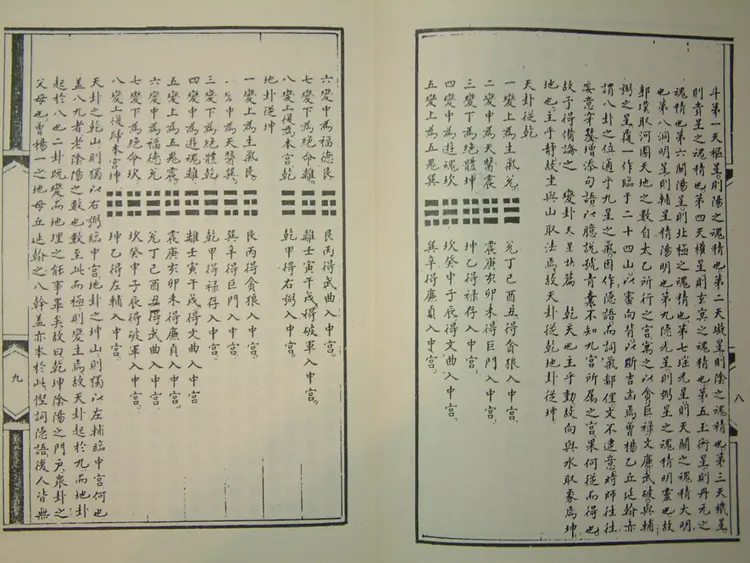 斗第一天樞星則陽之魂精也第二天璇星則陰之魂精也第三天機星
則貴星之魂精也第四天權星則玄冥之魂精也第五玉衡星則丹元之
魂精也第六闓陽星則北極之魂精也第七瑤光星則天關之魂精大明
也第八洞明星則輔星精陽明也第九隱元星則弼星之魂精明靈也故
郭璞取河圖天地之數自太乙所行之宮寓之以貪巨祿文廉武破與輔
弼之星覆一作臨于二十四山以審向背以斷吉凶焉曾楊乙丘廷翰亦
謂八卦之位通于九星之氣因作隱語而詞氣鄙俚文不逮意時師往往
妄意穿鑿增添句語以臆說號青囊不知九宮所屬之宮果何從而得也
故予得備論之 變卦
天卦從乾
地也主乎靜故坐與山取法焉故天卦從乾地卦從坤
一變上為生氣兌 兌丁巳酉丑得貪狼入中宮
二變中為天醫震 震庚亥卯未得巨門入中宮
三變下為絕體坤 坤乙得祿存入中宮
四變中為遊魂坎 坎癸申子辰得文曲入中宮
五變上為五鬼巽 巽辛得廉貞入中宮
六變中為福德艮 艮丙得武曲入中宮
七變下為絕命離 離壬寅午戌得破軍入中宮
八變上復為本宮乾 乾甲得右弼入中宮
地卦從坤
一變上為生氣艮 艮丙得貪狼入中宮
變中為天醫巽 巽辛得巨門入中宮
三變下為絕體乾 乾甲得祿存入中宮
四變中為遊魂離 離壬寅午戌得文曲入中宮
五變上為五鬼震 震庚亥卯未得廉貞入中宮
六變中為福德兌 兌丁巳酉丑得武曲入中宮
七變下為絕命坎 坎癸申子辰得破軍入中宮
八變上復歸本宮坤 坤乙得左輔入中宮
天卦之乾山則獨以右弼臨中宮地卦之坤山則獨以左輔臨中宮何也
蓋八九者老陰陽之數也數至此而極則變主焉故天卦起於九而地卦
起於八也二卦既變而地理之能事畢矣故曰乾坤陰陽之門戶眾卦之
父母也曾楊一之地母丘廷翰之八幹蓋亦本於此但詞隱語後人皆無
八
九